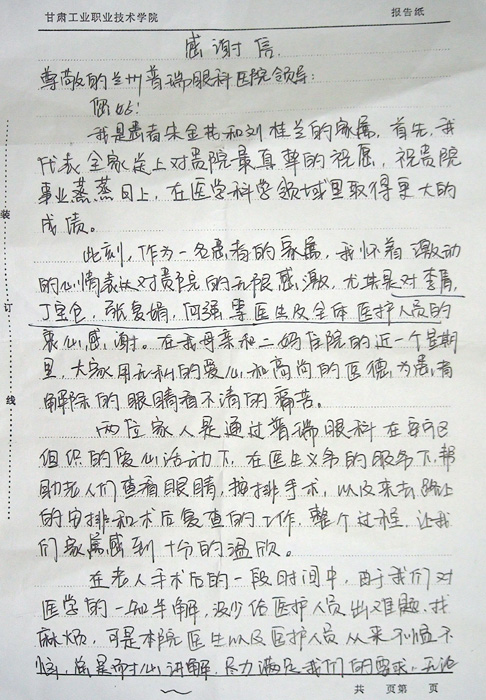 甘肃工业职业技术学院 报告纸
感谢信
尊敬的兰州普瑞眼科医院领导：
您好！
我是患者朱金花和刘桂兰的家属，首先，我
代表全家送上对贵院最真挚的祝愿，祝贵院
事业蒸蒸日上，在医学科学领域里取得更大的
成绩。
此刻，作为一名患者的家属，我怀着激动
的心情表达对贵院的无限感激，尤其是对李青，
丁宝仓，张复娟，何强等医生及全体医护人员的
衷心感谢。在我母亲和二妈住院的近一个星期
里，大家用无私的爱心和高尚的医德，为患者
解除的眼睛看不清的痛苦。
两位家人是通过普瑞眼科在
组织的爱心活动下，在医生义务的服务下，帮
助老人们查看眼睛，按排手术，以及来去路上
的安排和术后复查的工作，整个过程，让我
们家属感到十分的温欣。
在老人手术后的一段时间中，由于我们对
医学的一知半解，没少给医护人员出难题，找
麻烦，可是本院医生以及医护人员从来不愠不
恼，总是耐心讲解，尽力满足我们的要求，无论
装
订
线
共 页第 页